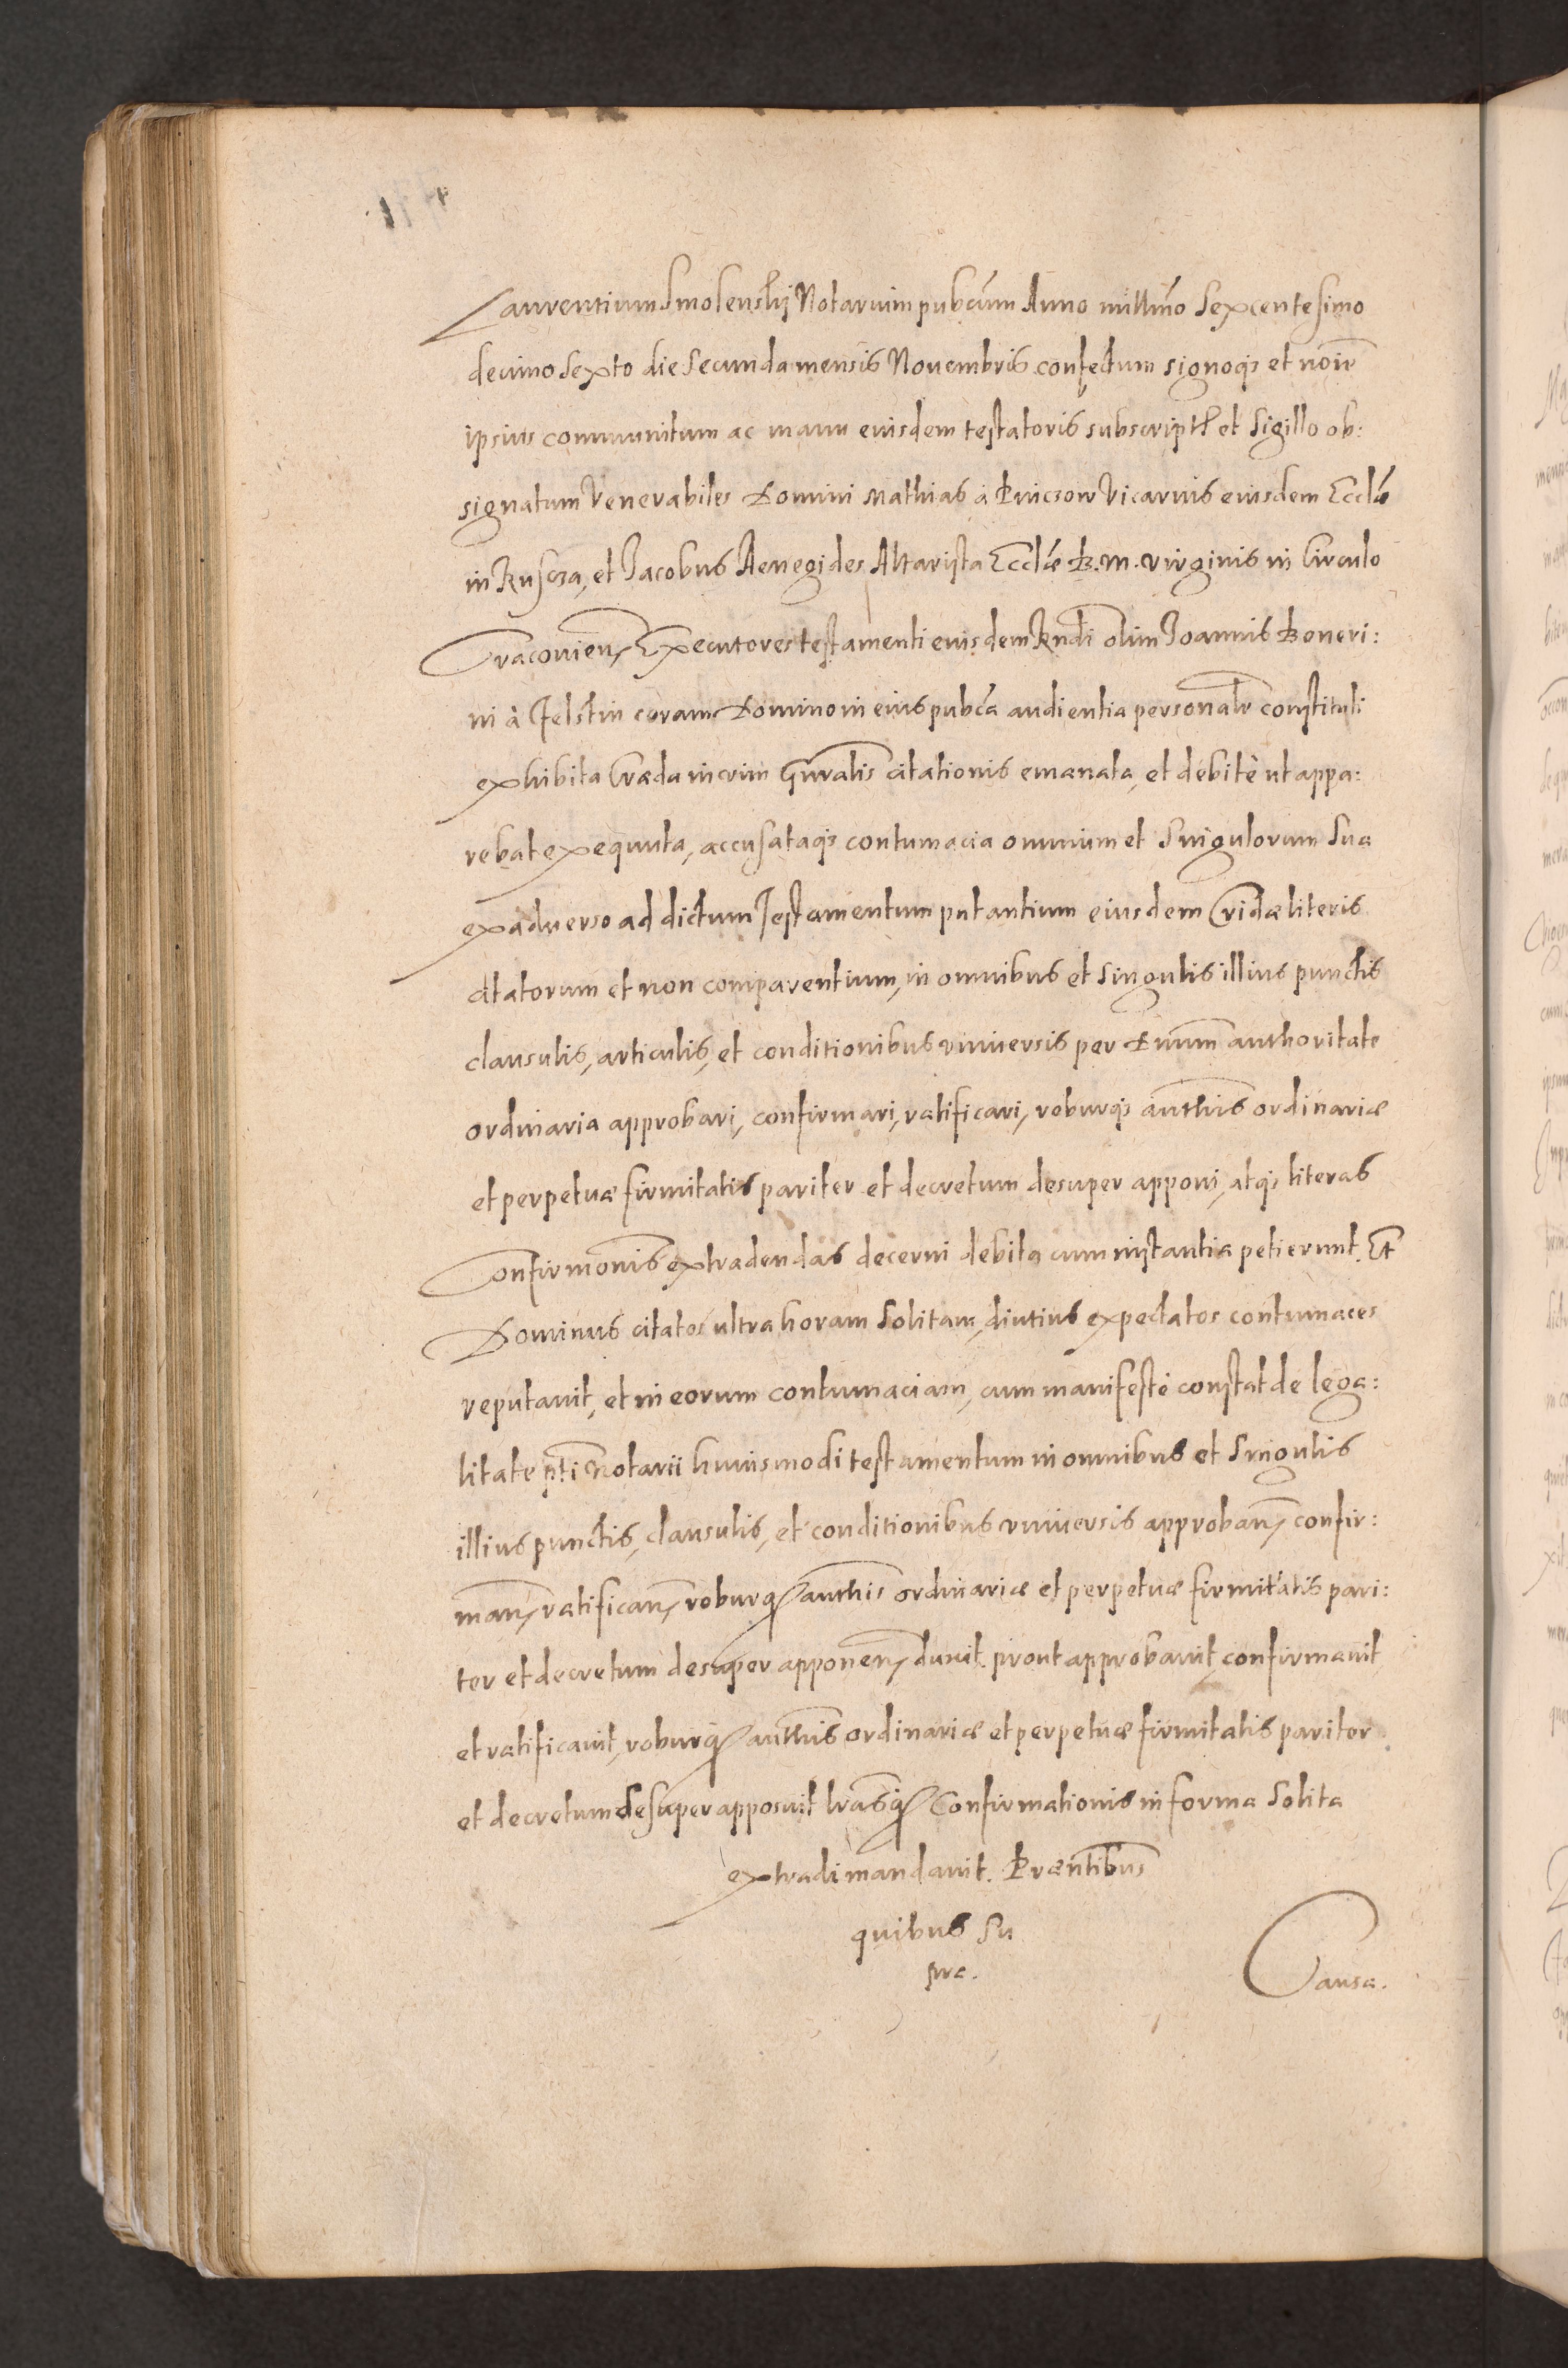 Laurentium Smolenskij Notarium pubcum Anno millmo Sexcentesimo
decimo Sexto die Secunda mensis Nouembris confectum signoqз et noīe
ipsius communitum ac manu eiusdem testatoris subscript et Sigillo ob:
signatum Venerabiles Domini Mathias à Pniczow Vicarius eiusdem Eccl̃æ
in Ruscza, et Jacobus Aenegides Altarista Eccl̃æ B. M. Virginis in Circulo
Cracouien̄ Executores testamenti eiusdem Rndi olim Joannis Boneri:
ni à Felstin coram Domino in eius pubca audientia personalr constituti
exhibita Craeda in crim Gnralis citationis emanata, et debitè ut appa:
rebat exequuta, accusataqз contumacia omnium et Singulorum Sua
ex aduerso ad dictum Testamentum putantium eiusdem Cridæ literis
citatorum et non comparentium, in omnibus et Singulis illius punctis
clausulis, articulis, et conditionibus vniuersis per Dnum authoritate
ordinaria approbari, confirmari, ratificari, roburqз authtis ordinariæ
et perpetuæ firmitatis pariter et decretum desuper apponi, atqз literas
Confirmonis extradendas decerni debita cum instantia petierunt. Et
Dominus citatos ultra horam Solitam, diutius expectatos contumaces
reputauit, et in eorum contumaciam, cum manifestè constat de lega:
litate pti Notarii huiusmodi testamentum in omnibus et Singulis
illius punctis, clausulis, et conditionibus vniuersis approban̄ confir:
man̄ ratifican̄ roburqз authtis ordinariæ et perpetuæ firmitatis pari:
ter et decretum desuper apponen̄ duxit. prout approbauit, confirmauit,
et ratificauit, roburqз authtis ordinariæ et perpetuæ firmitatis pariter
et decretum desuper apposuit lrasqз Confirmationis in forma Solita
extradi mandauit. Præntibus
quibus Su
pra.
Causa.